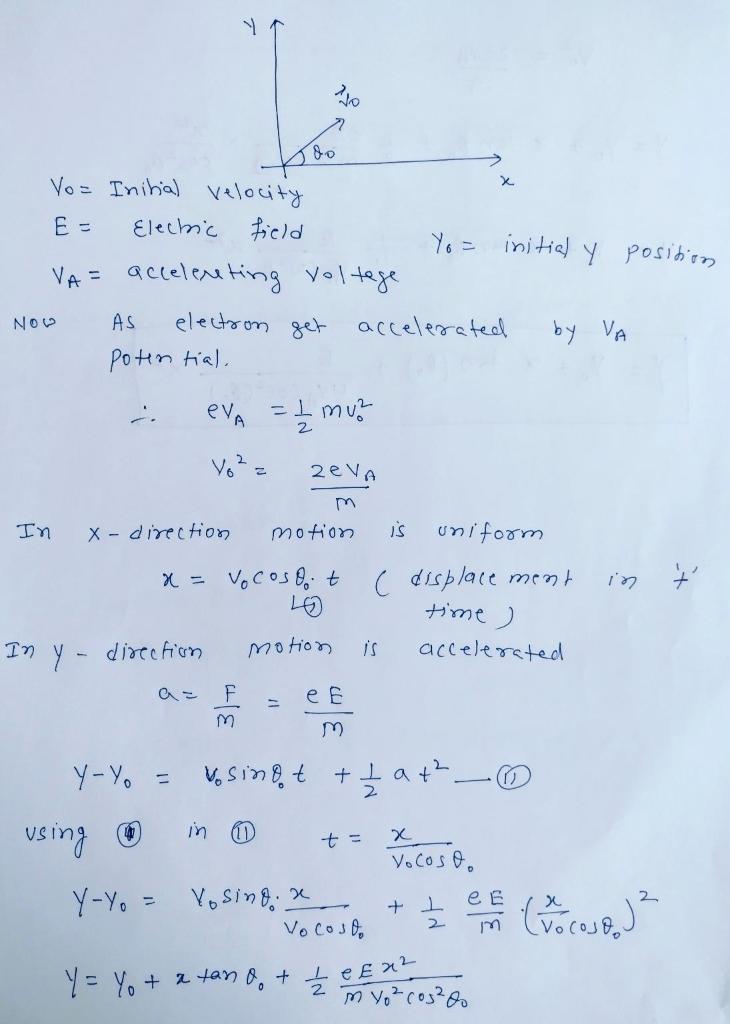 y
v⃗0
θ0
x
V0 = Initial velocity
E = Electric field
Y0 = initial y position
VA = accelerating voltage
Now As electron get accelerated by VA
potential.
∴ eVA = 1/2 mv0²
V0² = 2eVA/m
In x-direction motion is uniform
x = V0cosθ0.t ( displacement in 't'
time )
In y - direction motion is accelerated
a = F/m = eE/m
Y-Y0 = V0sinθ0t + 1/2 at² — (11)
using in (11) t = x/V0cosθ0
Y-Y0 = V0sinθ0. x/V0cosθ0 + 1/2 eE/m . (x/V0cosθ0)²
Y = Y0 + x tanθ0 + 1/2 eEx²/mV0²cos²θ0